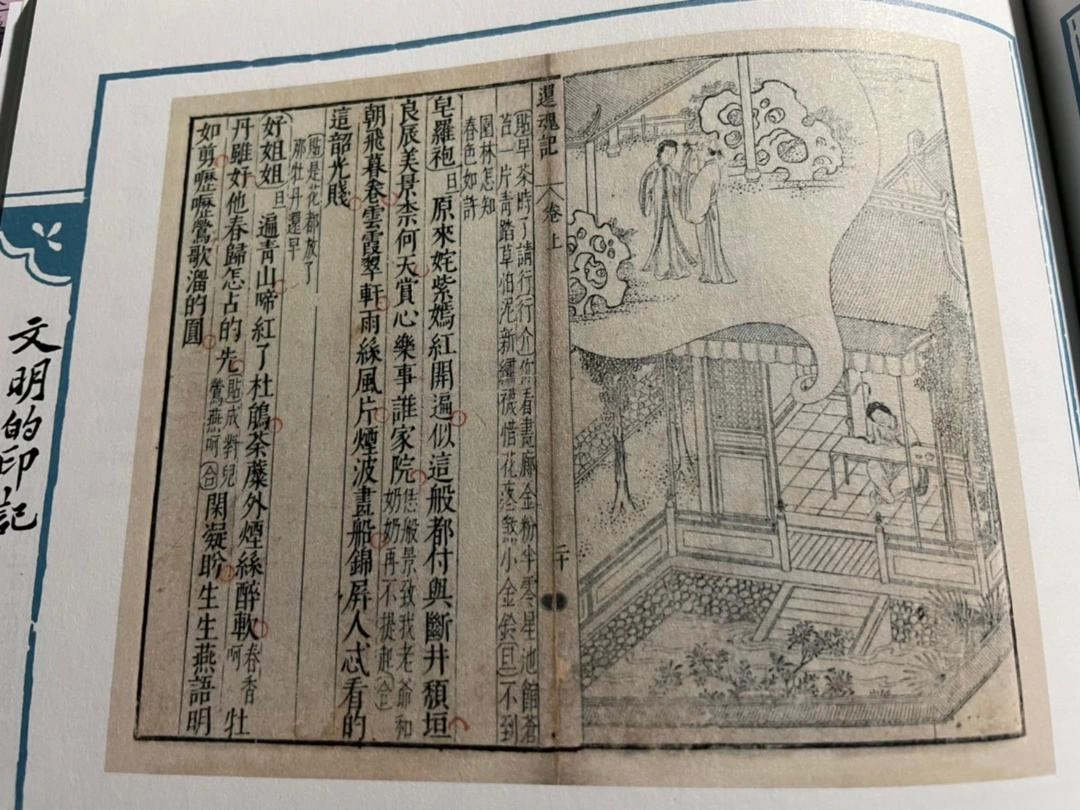 還魂記 卷上 二十
貼早茶時了請行行介你看畫廊金粉半零星池館蒼
苔一片青踏草怕泥新繡襪惜花疼煞小金鈴旦不到
園林怎知
春色如許
皂羅袍旦原來姹紫嫣紅開遍似這般都付與斷井頹垣
良辰美景柰何天賞心樂事誰家院恁般景致我老爺和奶奶再不提起合
朝飛暮卷雲霞翠軒雨絲風片煙波畫船錦屏人忒看的
這韶光賤
貼是花都放了
那牡丹還早
好姐姐旦遍青山啼紅了杜鵑荼蘼外煙絲醉軟春香呵牡
丹雖好他春歸怎占的先貼成對兒鶯燕呵合閑凝盼生生燕語明
如剪嚦嚦鶯歌溜的圓
文明的印記